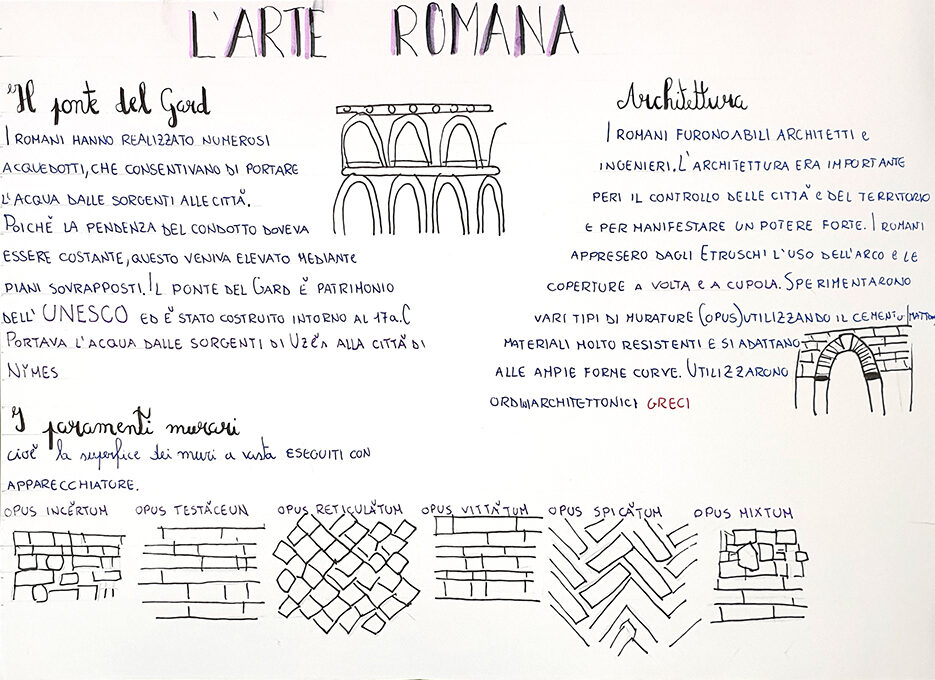 L'ARTE ROMANA
Il ponte del Gard
I ROMANI HANNO REALIZZATO NUMEROSI
ACQUEDOTTI, CHE CONSENTIVANO DI PORTARE
L'ACQUA DALLE SORGENTI ALLE CITTÀ.
POICHÈ LA PENDENZA DEL CONDOTTO DOVEVA
ESSERE COSTANTE, QUESTO VENIVA ELEVATO MEDIANTE
PIANI SOVRAPPOSTI. IL PONTE DEL GARD È PATRIMONIO
DELL'UNESCO ED È STATO COSTRUITO INTORNO AL 17a.C
PORTAVA L'ACQUA DALLE SORGENTI DI UZÈS ALLA CITTÀ DI
NIMES
Architettura
I ROMANI FURONO ABILI ARCHITETTI e
INGENIERI. L'ARCHITETTURA ERA IMPORTANTE
PERI IL CONTROLLO DELLE CITTÀ E DEL TERRITORIO
E PER MANIFESTARE UN POTERE FORTE. I ROMANI
APPRESERO DAGLI ETRUSCHI L'USO DELL'ARCO e LE
COPERTURE A VOLTA E A CUPOLA. SPERIMENTARONO
VARI TIPI DI MURATURE (OPUS) UTILIZZANDO IL CEMENTO/MATTONI
MATERIALI MOLTO RESISTENTI E SI ADATTANO
ALLE AMPIE FORME CURVE. UTILIZZARONO
ORDINI ARCHITETTONICI GRECI
I paramenti murari
cioè la superfice dei muri a vasta ESEGUITI CON
APPARECCHIATURE.
OPUS INCÈRTUM OPUS TESTÀCEUN OPUS RETICULÀTUM OPUS VITTÀTUM OPUS SPICÀTUM OPUS MIXTUM